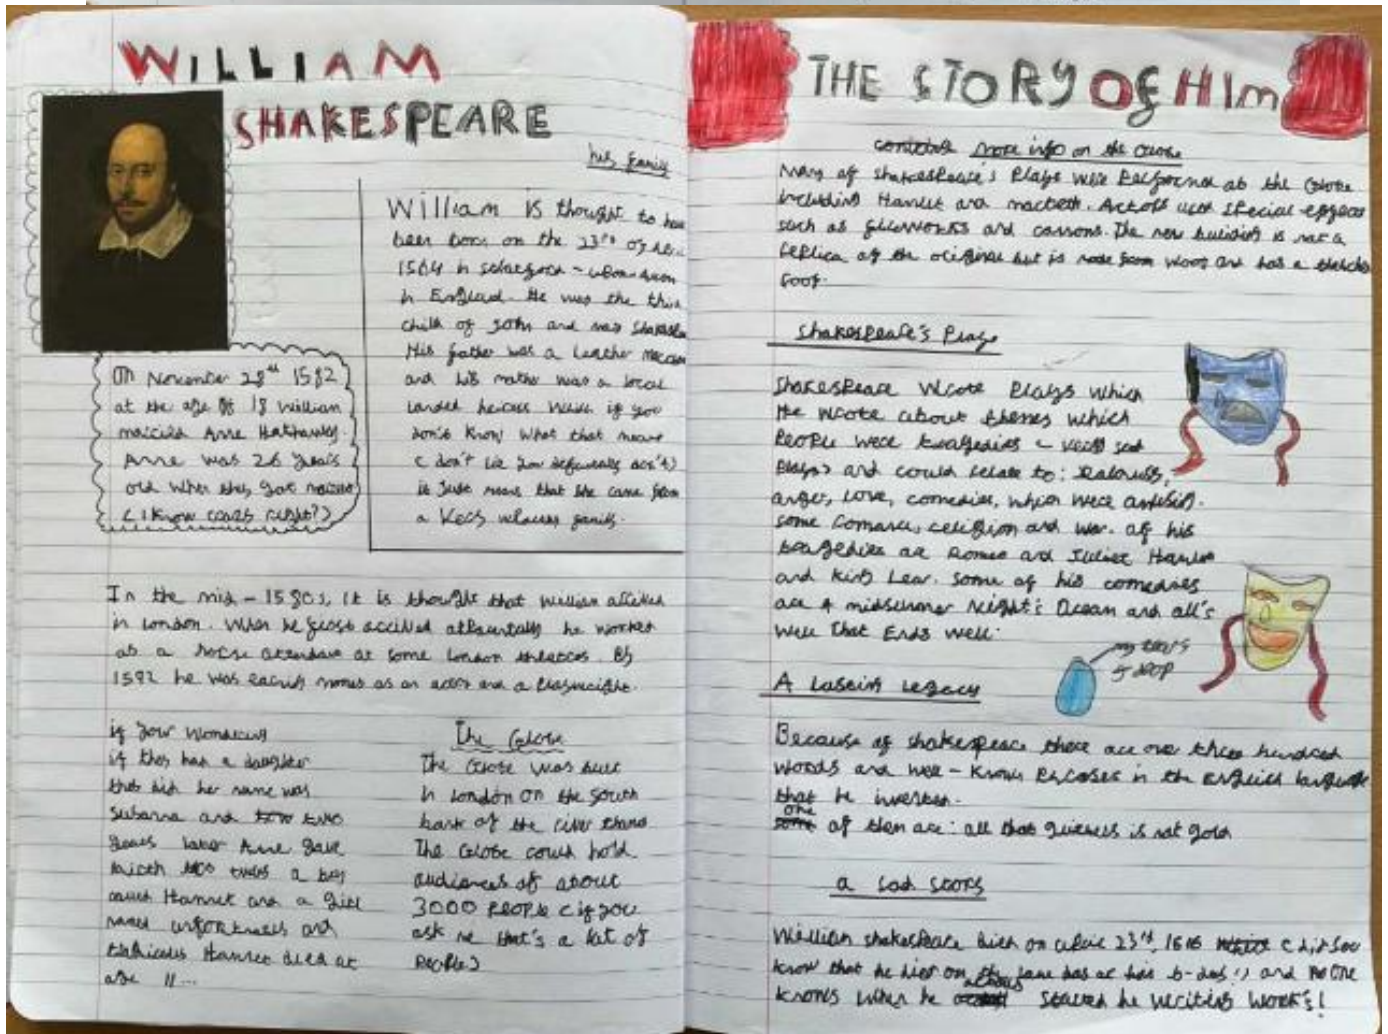 WILLIAM
SHAKESPEARE
his family
William is thought to have
been born on the 23rd of
1564 in stratford - upon-avon
in England. He was the third
child of John and mary
His father was a leather
and his mother was a local
landed heiress which if you
don't know what that means
( don't lie you definently don't)
it just means that she came from
a very wealthy family.
On November 28th 1582
at the age of 18 william
married Anne Hathaway.
Anne was 26 years
old when they got married
(I know right?)
In the mid - 1580s, it is thought that william arrived
in London. When he first arrived apparently he worked
as a horse attendant at some london theatres. By
1592 he was earning money as an actor and a playwright.
if your wondering
if they had a daughter
they did her name was
Susanna and two
years later Anne gave
birth twins a boy
called Hamnet and a girl
named and
Hamnet died at
age 11...
The Globe
The Globe was built
in London on the south
bank of the river thames
The Globe could hold
audiences of about
3000 people (if you
ask me that's a lot of
people)
THE STORY Of HIm
more info on the Globe
Many of Shakespeare's Plays were performed at the Globe
including Hamlet and macbeth. special effects
such as fireworks and cannons. The new building is not a
replica of the original but is made from wood and has a
roof.
Shakespeare's Plays
Shakespeare wrote Plays which
he wrote about themes which
People were tragedies very sad
plays) and could relate to: Jealousy,
anger, love, comedies, which were
some romance, religion and war. of his
tragedies are Romeo and Juliet Hamlet
and King Lear. Some of his comedies
are A midsummer Night's Dream and all's
well That Ends well.
A Lasting Legacy
Because of shakespeare there are over three hundred
words and well - known phrases in the English language
that he invented.
one
of them are: all that is not gold
a sad story
William shakespeare died on 23rd, 1616 (did you
know that he died on the same day as his b-day!) and no one
knows when he started he writing work's!